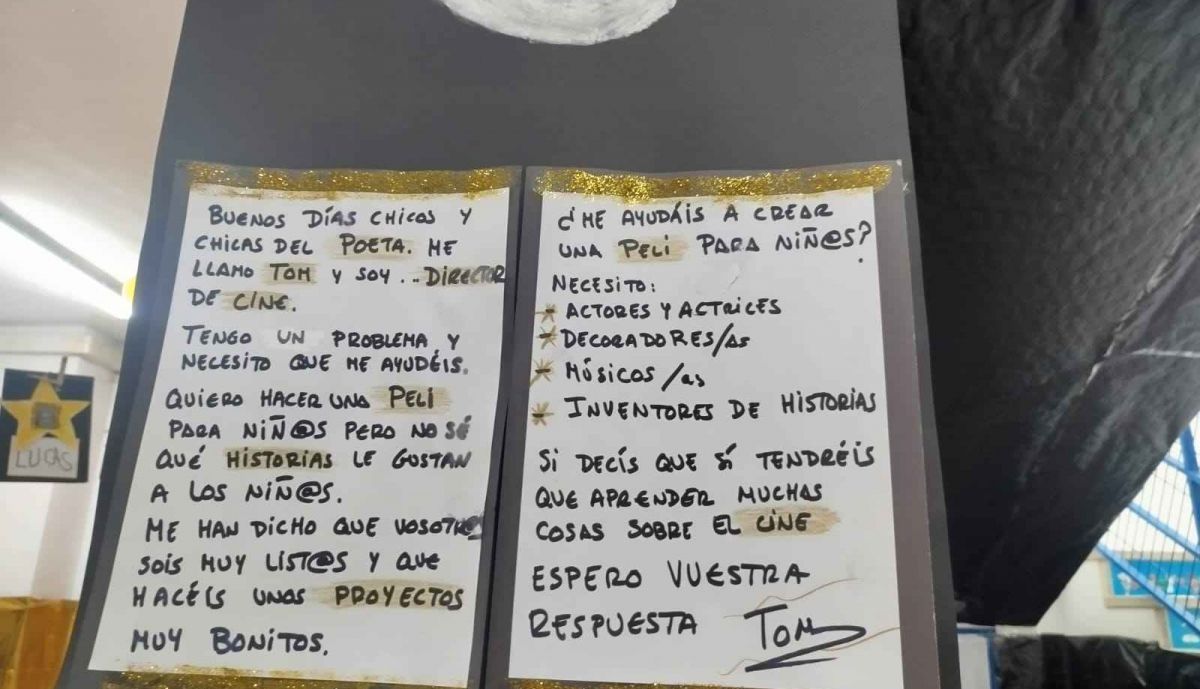 BUENOS DÍAS CHICOS Y
CHICAS DEL POETA. ME
LLAMO TOM Y SOY... DIRECTOR
DE CINE.
TENGO UN PROBLEMA Y
NECESITO QUE ME AYUDÉIS.
QUIERO HACER UNA PELI
PARA NIÑ@S PERO NO SÉ
QUÉ HISTORIAS LE GUSTAN
A LOS NIÑ@S.
ME HAN DICHO QUE VOSOTR@S
SOIS MUY LIST@S Y QUE
HACÉIS UNOS PROYECTOS
MUY BONITOS.
¿ME AYUDÁIS A CREAR
UNA PELI PARA NIÑ@S?
NECESITO:
- ACTORES Y ACTRICES
- DECORADORES/AS
- MÚSICOS/AS
- INVENTORES DE HISTORIAS
SI DECÍS QUE SÍ TENDRÉIS
QUE APRENDER MUCHAS
COSAS SOBRE EL CINE
ESPERO VUESTRA
RESPUESTA TOM
LUCAS